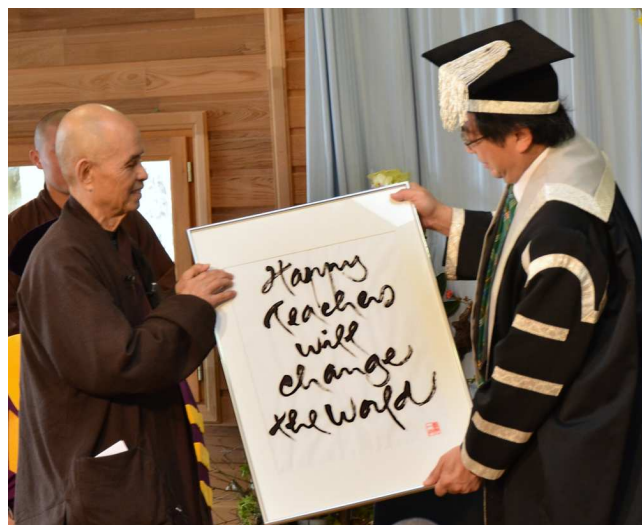 Happy
Teachers
will
change
the World